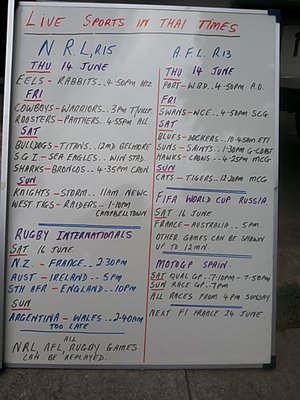 LIVE SPORTS IN THAI TIMES
N.R.L, R15
THU 14 JUNE
EELS - RABBITS.. 4-50PM ANZ
FRI
COWBOYS - WARRIORS.. 3PM T/VILLE
ROOSTERS - PANTHERS.. 4-55PM ALL
SAT
BULLDOGS - TITANS.. 12MD BELMORE
S G I - SEA EAGLES.. WIN STAD.
SHARKS - BRONCOS.. 4-35PM CRON.
SUN
KNIGHTS - STORM.. 11AM NEWC.
WEST TIGS - RAIDERS.. 1-10PM
CAMPBELLTOWN
RUGBY INTERNATIONALS
SAT 16 JUNE
N.Z - FRANCE.. 2:30PM
AUST - IRELAND.. 5PM
STH AFR - ENGLAND.. 10PM
SUN
ARGENTINA - WALES.. 2:40AM
TOO LATE
ALL
NRL, AFL, RUGBY GAMES
CAN BE REPLAYED.
A.F.L R13
THU 14 JUNE
PORT - W.B.D. 4-50PM A.O.
FRI
SWANS - WCE.. 4-50PM SCG
SAT
BLUES - DOCKERS.. 10-45AM ETI
SUNS - SAINTS.. 1-30PM G-COAST
HAWKS - CROWS.. 4-25PM MCG
SUN
CATS - TIGERS.. 12:20PM MCG
FIFA WORLD CUP RUSSIA
SAT 16 JUNE
FRANCE - AUSTRALIA.. 5PM.
OTHER GAMES CAN BE SHOWN
UP TO 12 MN.
MOTOGP SPAIN
SAT QUAL GP.. 7-10PM - 7-50PM
SUN RACE GP.. 7PM
ALL RACES FROM 4PM SUNDAY.
NEXT F1 FRANCE 24 JUNE.